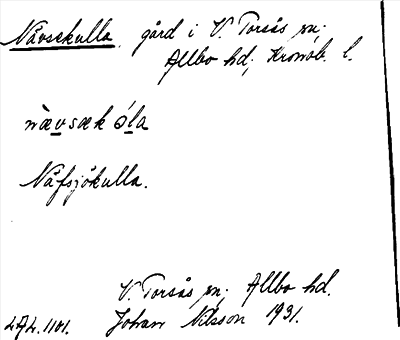 Nävsekulla, gård i V. Torsås sn;
Allbo hd; Kronob. l.
nàvsæk óla
Näfsjökulla.
V. Torsås sn; Allbo hd.
LAL. 1101. Johan Nilsson 1931.